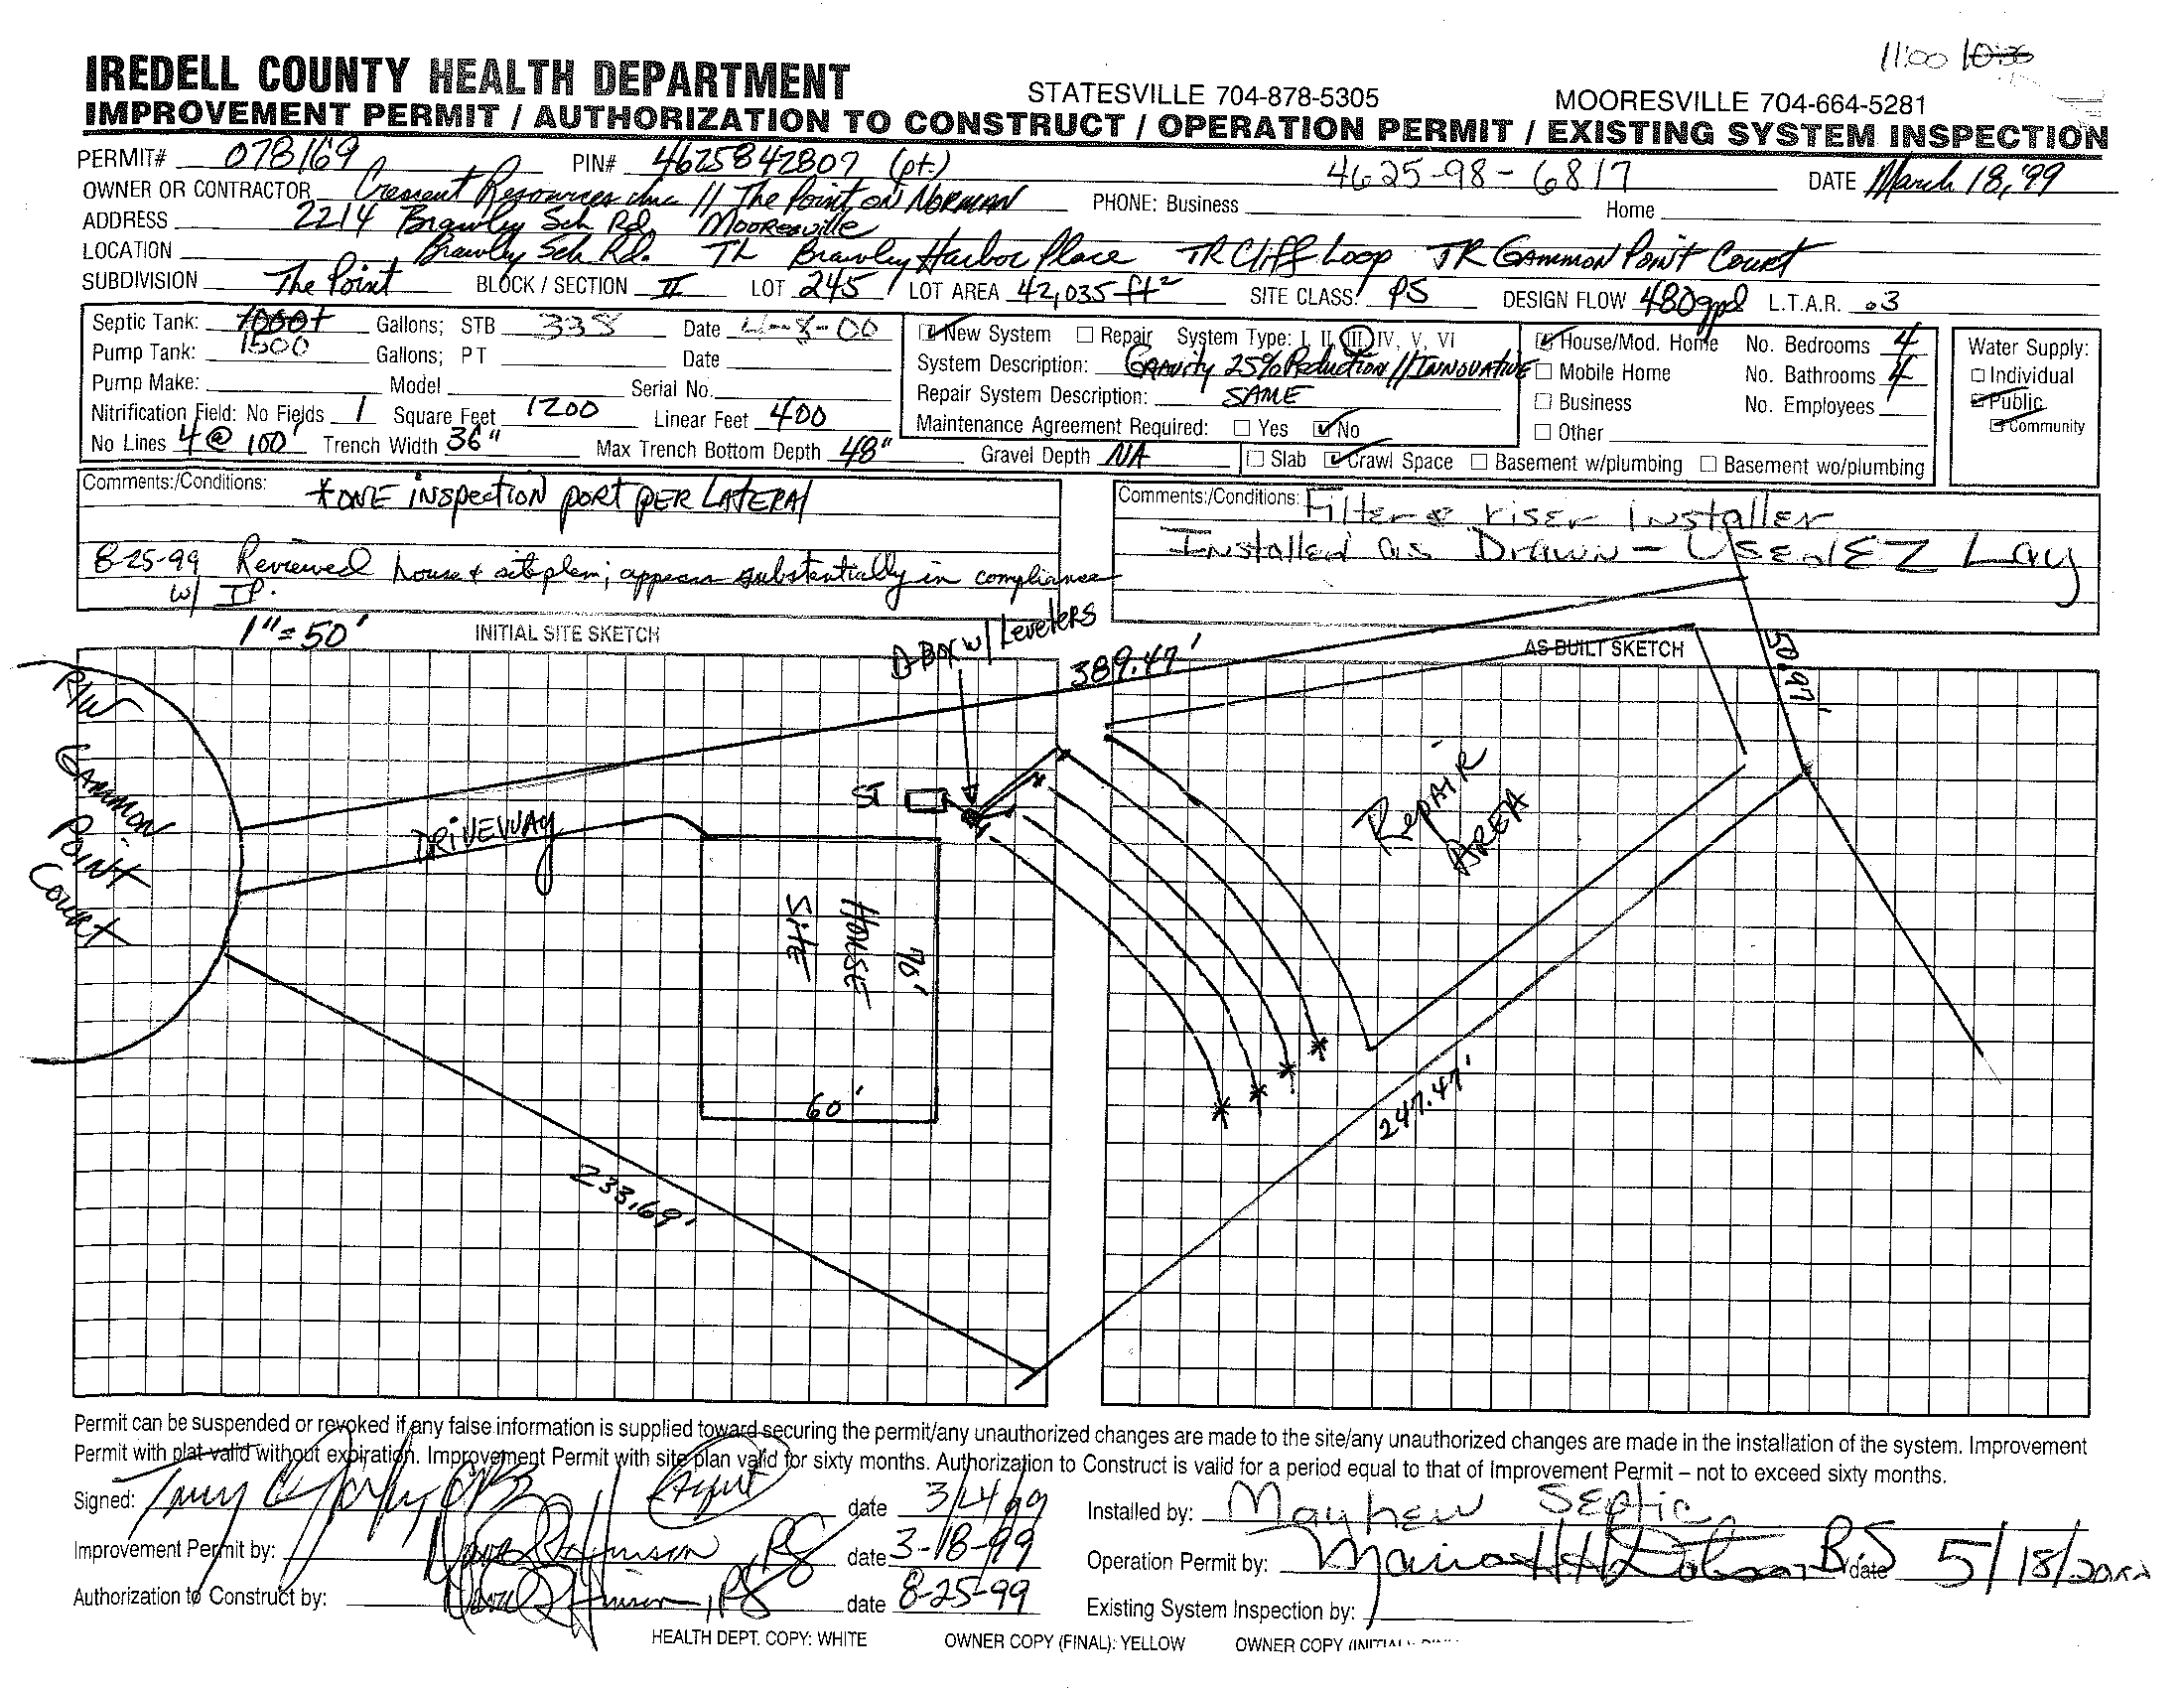 11:00
IREDELL COUNTY HEALTH DEPARTMENT STATESVILLE 704-878-5305 MOORESVILLE 704-664-5281
IMPROVEMENT PERMIT / AUTHORIZATION TO CONSTRUCT / OPERATION PERMIT / EXISTING SYSTEM INSPECTION
PERMIT# 078169 PIN# 4625842807 (pt.) 4625-98-6817 DATE March 18, '99
OWNER OR CONTRACTOR Crescent Resources Inc // The Point on NORMAN PHONE: Business Home
ADDRESS 2214 Brawley Sch Rd. Mooresville
LOCATION Brawley Sch Rd. TL Brawley Harbor Place TR Cliff Loop TR Gammon Point Court
SUBDIVISION The Point BLOCK / SECTION II LOT 245 LOT AREA 42,035 ft² SITE CLASS: PS DESIGN FLOW 480gpd L.T.A.R. .3
Septic Tank: 1000+ Gallons; STB 338 Date 4-8-00
1500
Pump Tank: Gallons; PT Date
Pump Make: Model Serial No.
Nitrification Field: No Fields 1 Square Feet 1200 Linear Feet 400
No Lines 4 @ 100' Trench Width 36" Max Trench Bottom Depth 48" Gravel Depth NA
New System Repair System Type: I, II, III, IV, V, VI
System Description: Gravity 25% Reduction // INNOVATIVE
Repair System Description: SAME
Maintenance Agreement Required: Yes No
House/Mod. Home No. Bedrooms 4
Mobile Home No. Bathrooms 4
Business No. Employees
Other
Slab Crawl Space Basement w/plumbing Basement wo/plumbing
Water Supply:
Individual
Public
Community
Comments:/Conditions: *ONE inspection port per LATERAL
8-25-99 Reviewed house & site plan; appears substantially in compliance
w/ IP.
Comments:/Conditions: Filter & riser Installer
Installed as Drawn - Used EZ Lay
1" = 50' INITIAL SITE SKETCH
D-Box w/ Levelers
389.47'
AS BUILT SKETCH
50.97'
R/W
GAMMON
POINT
COURT
DRIVEWAY
ST
HOUSE
SITE
70'
60'
Repair
AREA
233.69'
247.47'
Permit can be suspended or revoked if any false information is supplied toward securing the permit/any unauthorized changes are made to the site/any unauthorized changes are made in the installation of the system. Improvement
Permit with plat valid without expiration. Improvement Permit with site plan valid for sixty months. Authorization to Construct is valid for a period equal to that of Improvement Permit – not to exceed sixty months.
Signed: date
Improvement Permit by: date 3-18-99
Authorization to Construct by: date 8-25-99
Installed by: Mayhew Septic
Operation Permit by: date 5/18/2000
Existing System Inspection by:
HEALTH DEPT. COPY: WHITE OWNER COPY (FINAL): YELLOW OWNER COPY